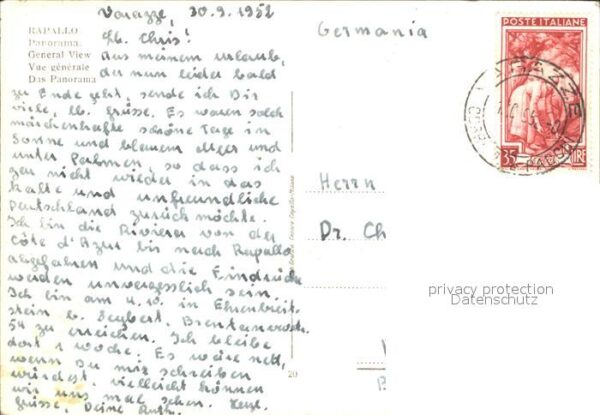 Varazze, 30.9.1952
RAPALLO
Panorama.
General View
Vue générale
Das Panorama
Lb. Chris!
Aus meinem Urlaub,
der nun leider bald
zu Ende geht, sende ich Dir
viele, lb. Grüsse. Es waren solch
märchenhafte schöne Tage in
Sonne und blauem Meer und
unter Palmen, so dass ich
gar nicht wieder in das
kalte und unfreundliche
Deutschland zurück möchte.
Ich bin die Riviera von der
Côte d'Azur bis nach Rapallo
abgefahren und die Eindrücke
werden unvergesslich sein.
Ich bin am 4.10. in Ehrenbreit-
stein b. Seybert, Brentanostr.
54 zu erreichen. Ich bleibe
dort 1 Woche. Es wäre nett,
wenn Du mir schreiben
würdest, vielleicht können
wir uns mal sehen. Herzl.
Grüsse, Deine Ruth.
20
Germania
POSTE ITALIANE
VARAZZE
35 LIRE
Herrn
Dr. Ch
privacy protection
Datenschutz